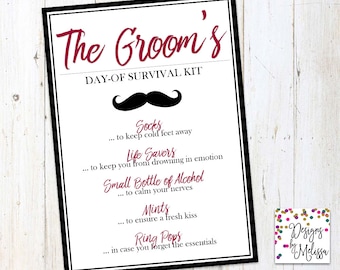 The Groom's
DAY-OF SURVIVAL KIT
Socks
... to keep cold feet away
Life Savers
... to keep you from drowning in emotion
Small Bottle of Alcohol
... to calm your nerves
Mints
... to ensure a fresh kiss
Ring Pops
... in case you forget the essentials
Designs
by
Melissa